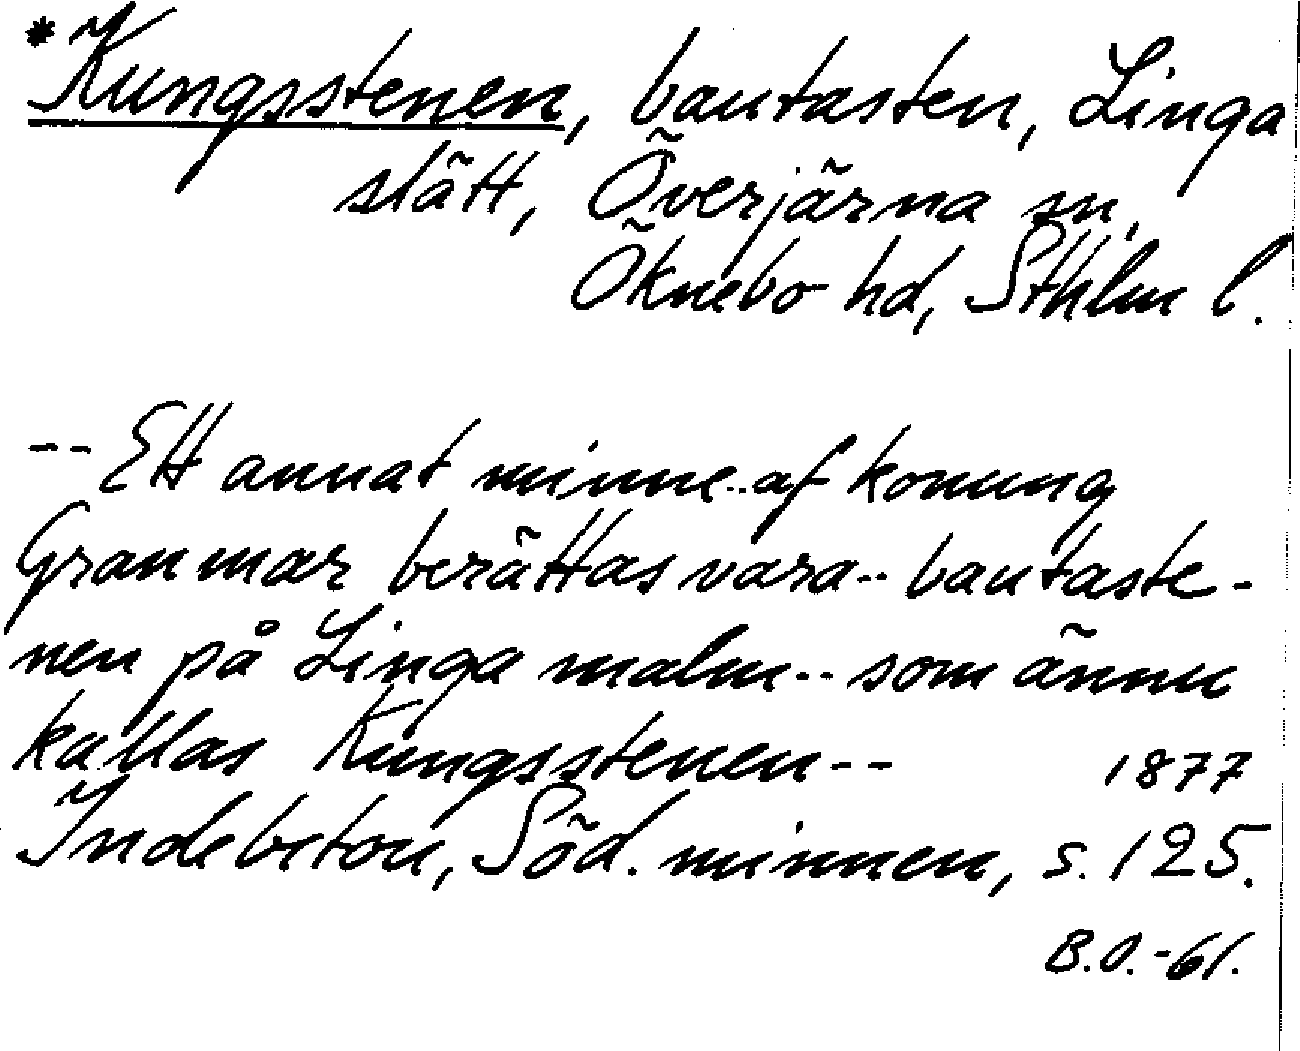 *Kungsstenen, bautasten, Linga
slätt, Överjärna sn,
Öknebo hd, Sthlm l.
-- Ett annat minne..af konung
Granmar berättas vara.. bautaste-
nen på Linga malm.. som ännu
kallas Kungsstenen-- 1877
Indebetou, Söd. minnen, s. 125.
B.O.-61.